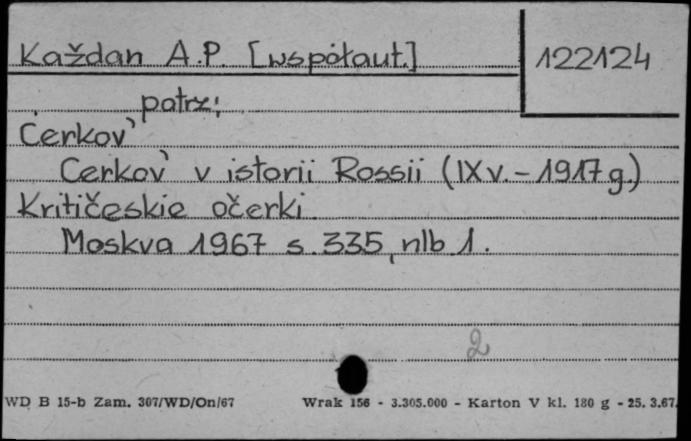 Každan A.P. [współaut.]
122124
patrz:
Cerkov'
Cerkov' v istorii Rossii (IX v. - 1917 g.)
Kritičeskie očerki.
Moskva 1967 s. 335, nlb 1.
2
WD B 15-b Zam. 307/WD/On/67 Wrak 156 - 3.305.000 - Karton V kl. 180 g - 25. 3.67.